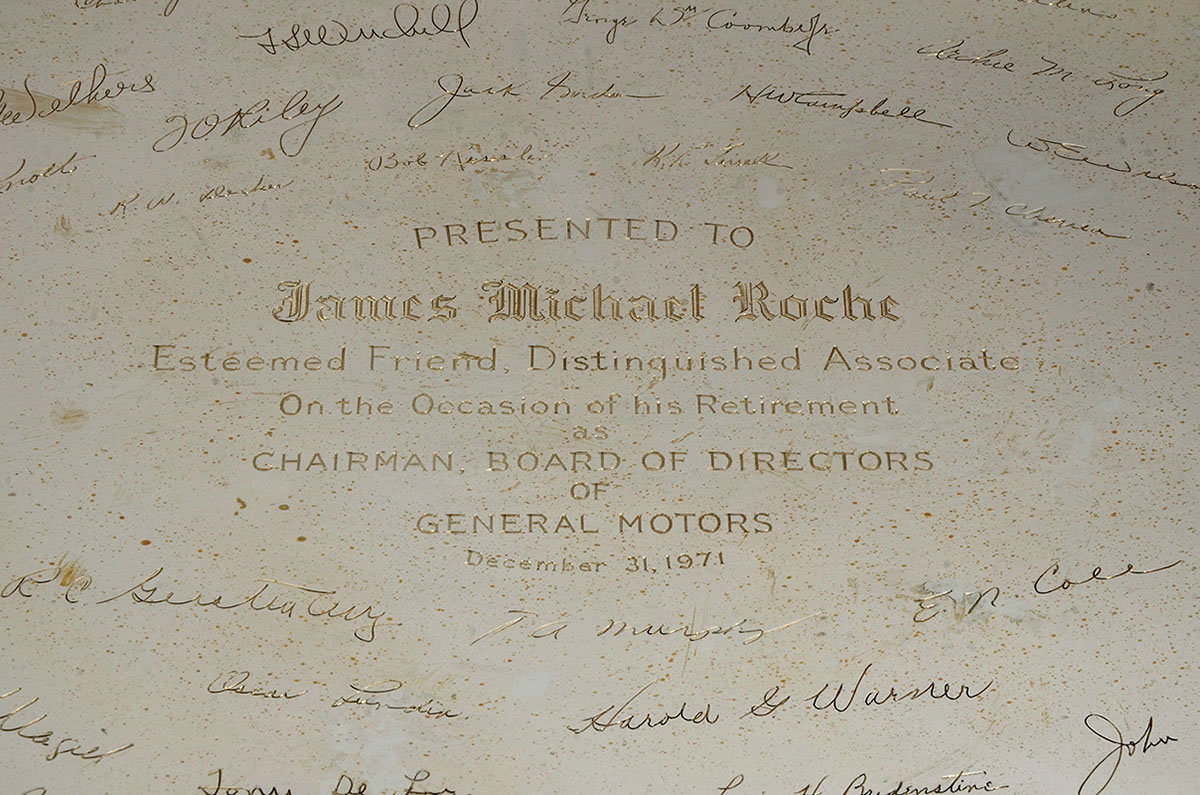 George Wm Coombe Jr
Archie M Long
Jack
H W Campbell
T O Riley
W E Wilson
Bob Kessler
R W Decker
Paul F Chenea
PRESENTED TO
James Michael Roche
Esteemed Friend, Distinguished Associate
On the Occasion of his Retirement
as
CHAIRMAN, BOARD OF DIRECTORS
OF
GENERAL MOTORS
December 31, 1971
R C Gerstenberg
T A Murphy
E N Cole
Oscar Lundin
Harold G Warner
John
Tony De Lo
H Bridenstine